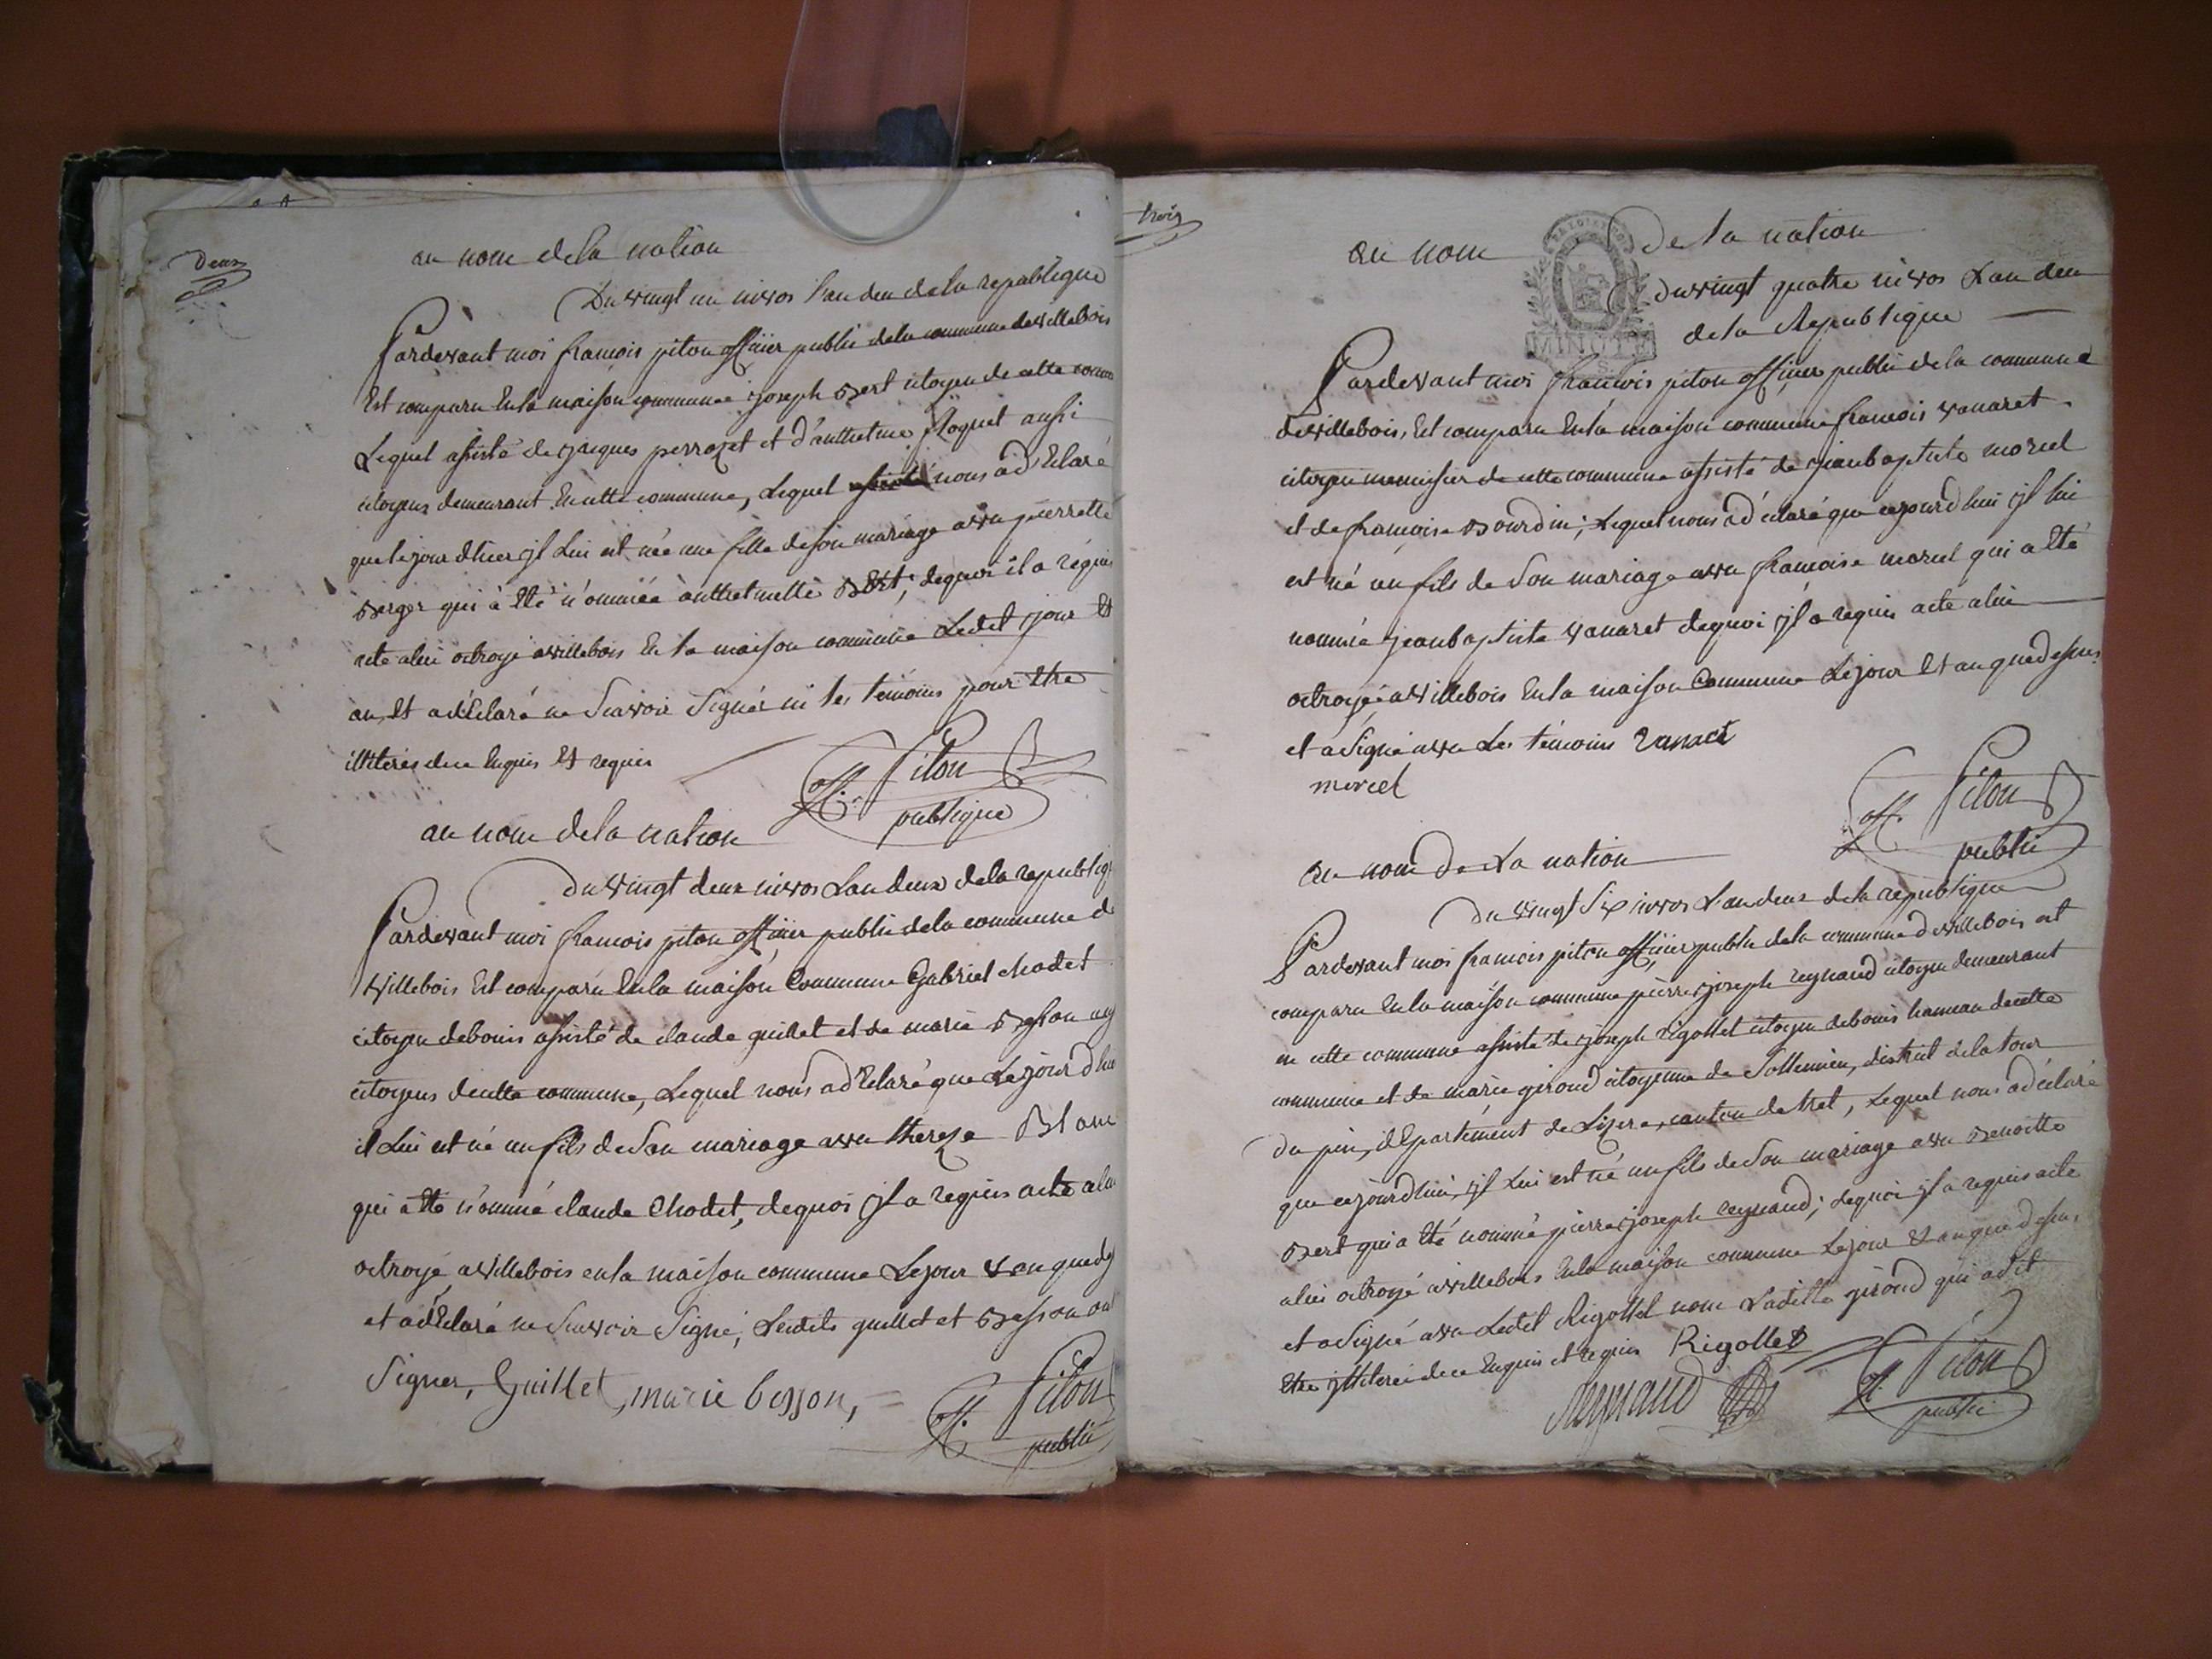 Deux
au nom dela nation
Du vingt un nivos l'an deu dela republique
Pardevant moi francois piton officier public dela commune devillebois
Est comparu Enla maison commune joseph Bert citoyen de cette comm
Lequel assisté de jacques perrozet et d'anthelme floquet aussi
citoyens demeurant En cette commune, Lequel nous a déclaré
que le jour d'hier jl Lui est née une fille deson mariage avec pierrette
Berger qui à Eté n'ommée anthelmette Bert, dequoi il a réquis
acte alui octroyé avillebois En la maison commune Ledit jour Et
an, Et a déClaré ne Scavoir Signér ni les témoins pour Etre
illiterés dece Enquis Et requis
Piton
off. publique
au nom dela nation
Du vingt deux nivos Lan deux dela republiq
Pardevant moi francois piton officier public dela commune de
Villebois Est comparu Enla maison Commune Gabriel chodet
citoyen debouis assisté de claude guillet et de marie Besson
citoyens decette commune, Lequel nous a déClaré que Lejour dhui
il Lui est né un fils de Son mariage avec thereze Blanc
qui a été n'ommé claude Chodet, dequoi jl a requis acte alui
octroyé avillebois enla maison commune Lejour & an que
et a déClaré ne Scavoir Signé, Lesdits guillet et Besson ont
Signer, Guillet, marie besson,
Piton
off. public
trois
au nom De la nation
MINUTE
Du vingt quatre nivos Lan deu
dela Republique
Pardevant moi francois piton officier public dela commune
devillebois, Est comparu Enla maison commune francois vanaret
citoyen menuisier de cette commune assisté de jeanbaptiste morcel
et de francoise Bourdin; Lequel nous a déclaré que cejourd'hui jl lui
est né un fils de Son mariage avec francoise morcel qui a Eté
nommé jeanbaptiste vanaret dequoi jl a requis acte alui
octroyé, avillebois Enla maison Commune Lejour Et an quedessus
et a Signé avec Les témoins Vanaret
morcel
Piton
off. public
au nom De La nation
Du vingt Six nivos Landeux dela republique
Pardevant moi francois piton officier public dela commune devillebois est
comparu Enla maison commune pierre joseph reynaud citoyen demeurant
en cette commune assisté de joseph rigollet citoyen debouis hameau decette
commune et de marie giroud citoyenne de Sollemieu, district dela tour
Du pin, dEpartément de Lizere, canton de tret, Lequel nous a déclaré
que cejourdhui, jl Lui est né un fils de Son mariage avec Benoitte
Bert qui a Eté nommé pierre joseph reynaud; dequoi jl a requis acte
alui octroyé avillebois Enla maison commune Lejour & an que dessus,
et a Signé avec Ledit Rigollet non Ladite giroud qui a dit
Etre jlliteréé dece Enquis et requis Rigollet
Reynaud
Piton
off. public